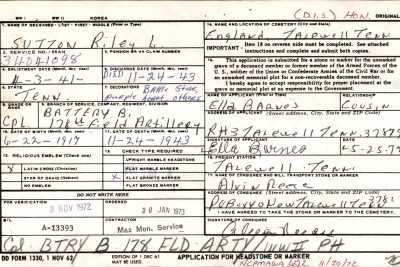 WW I WW II KOREA
(D.I.S.) HON.
ORIGINAL
NAME OF DECEASED - LAST - FIRST - MIDDLE (Print or Type)
SUTTON Riley L
2. SERVICE NO./SSAN
34041098
3. PENSION OR VA CLAIM NUMBER
4. ENLISTMENT DATE
4-3-41-
5. DISCHARGE DATE
DIED 11-24-43
6. STATE
TENN.
7. DECORATIONS
Battle Star
Purple Heart others
BATTERY B.
Cpl 178 Field Artillery
10. DATE OF BIRTH (Month, Day, Year)
6-22-1917
11. DATE OF DEATH (Month, Day, Year)
11-24-1943
12. RELIGIOUS EMBLEM (Check one)
X LATIN CROSS (Christian)
STAR OF DAVID
NO EMBLEM
CHECK TYPE REQUIRED
UPRIGHT MARBLE HEADSTONE
FLAT MARBLE MARKER
X FLAT GRANITE MARKER
FLAT BRONZE MARKER
DO NOT WRITE HERE
FOR VERIFICATION
3 NOV 1972
ORDERED
30 JAN 1973
A-13393
CONTRACTOR
Maz Mon. Service
14. NAME AND LOCATION OF CEMETERY (City and State)
England Tazewell Tenn
IMPORTANT - Item 18 on reverse side must be completed. See attached instructions and complete and submit both copies.
This application is submitted for a stone or marker for the unmarked grave of a deceased member or former member of the Armed Forces of the U.S., soldier of the Union or Confederate Armies of the Civil War or for an unmarked memorial plot for a non-recoverable deceased member.
I hereby agree to accept responsibility for proper placement at the grave or memorial plot at no expense to the Government.
NAME OF APPLICANT (Print or Type)
RELATIONSHIP
Ella Barnes Cousin
ADDRESS OF APPLICANT (Street address, City, State and ZIP Code)
Rt#3 Tazewell Tenn. 37879
SIGNATURE OF APPLICANT
DATE
Ella Barnes
16. FREIGHT STATION
Tazewell Tenn
NAME OF CONSIGNEE WHO WILL TRANSPORT STONE OR MARKER
Alvin Reece
ADDRESS OF CONSIGNEE (Street address, City, State and ZIP Code)
I HAVE AGREED TO TAKE THE STONE OR MARKER TO THE CEMETERY.
Cpl BTRY B 178 FLD ARTY WWII PH
DD FORM 1330, 1 NOV 62
EDITION OF 1 DEC 61 MAY BE USED.
APPLICATION FOR HEADSTONE OR MARKER
11/20/72